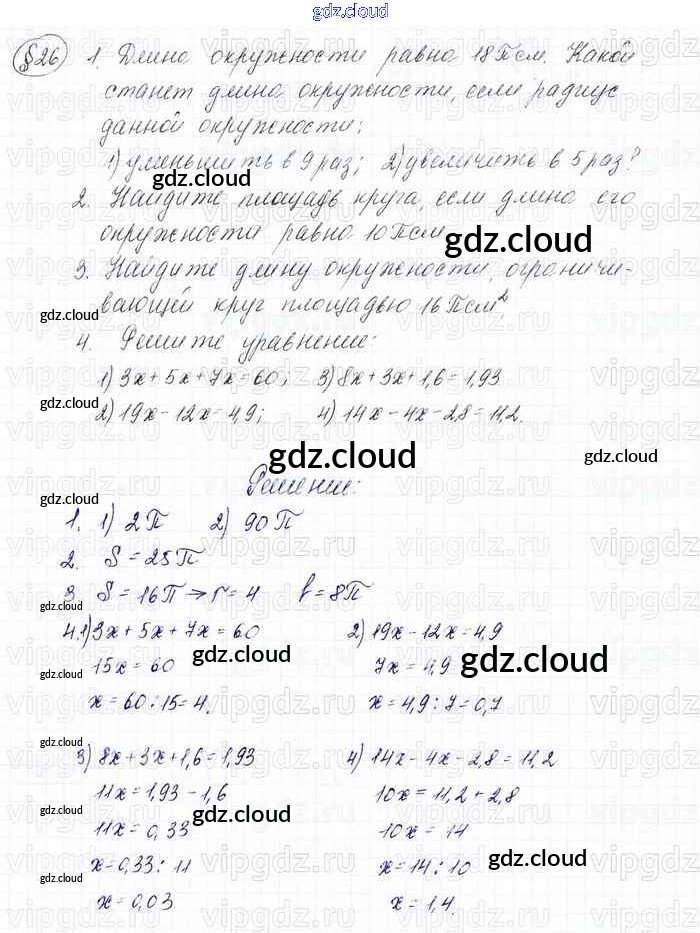 gdz.cloud
§26 1. Длина окружности равна 18π см. Какой
станет длина окружности, если радиус
данной окружности:
1) уменьшить в 9 раз; 2) увеличить в 5 раз?
gdz.cloud
2. Найдите площадь круга, если длина его
окружности равна 10π см
gdz.cloud
3. Найдите длину окружности, ограничи-
вающей круг площадью 16π см².
gdz.cloud
4. Решите уравнение:
1) 3x + 5x + 7x = 60; 3) 8x + 3x + 1,6 = 1,93
gdz.cloud
2) 19x - 12x = 4,9; 4) 14x - 4x - 2,8 = 11,2.
gdz.cloud gdz.cloud
Решение:
1. 1) 2π 2) 90π
2. S = 25π
3 S = 16π → r = 4 l = 8π
gdz.cloud
4.1) 3x + 5x + 7x = 60 2) 19x - 12x = 4,9
gdz.cloud gdz.cloud
15x = 60 7x = 4,9
gdz.cloud
x = 60 : 15 = 4. x = 4,9 : 7 = 0,7
gdz.cloud
3) 8x + 3x + 1,6 = 1,93 4) 14x - 4x - 2,8 = 11,2
11x = 1,93 - 1,6 10x = 11,2 + 2,8
gdz.cloud gdz.cloud
11x = 0,33 10x = 14
gdz.cloud
x = 0,33 : 11 x = 14 : 10
gdz.cloud
x = 0,03 x = 1,4.